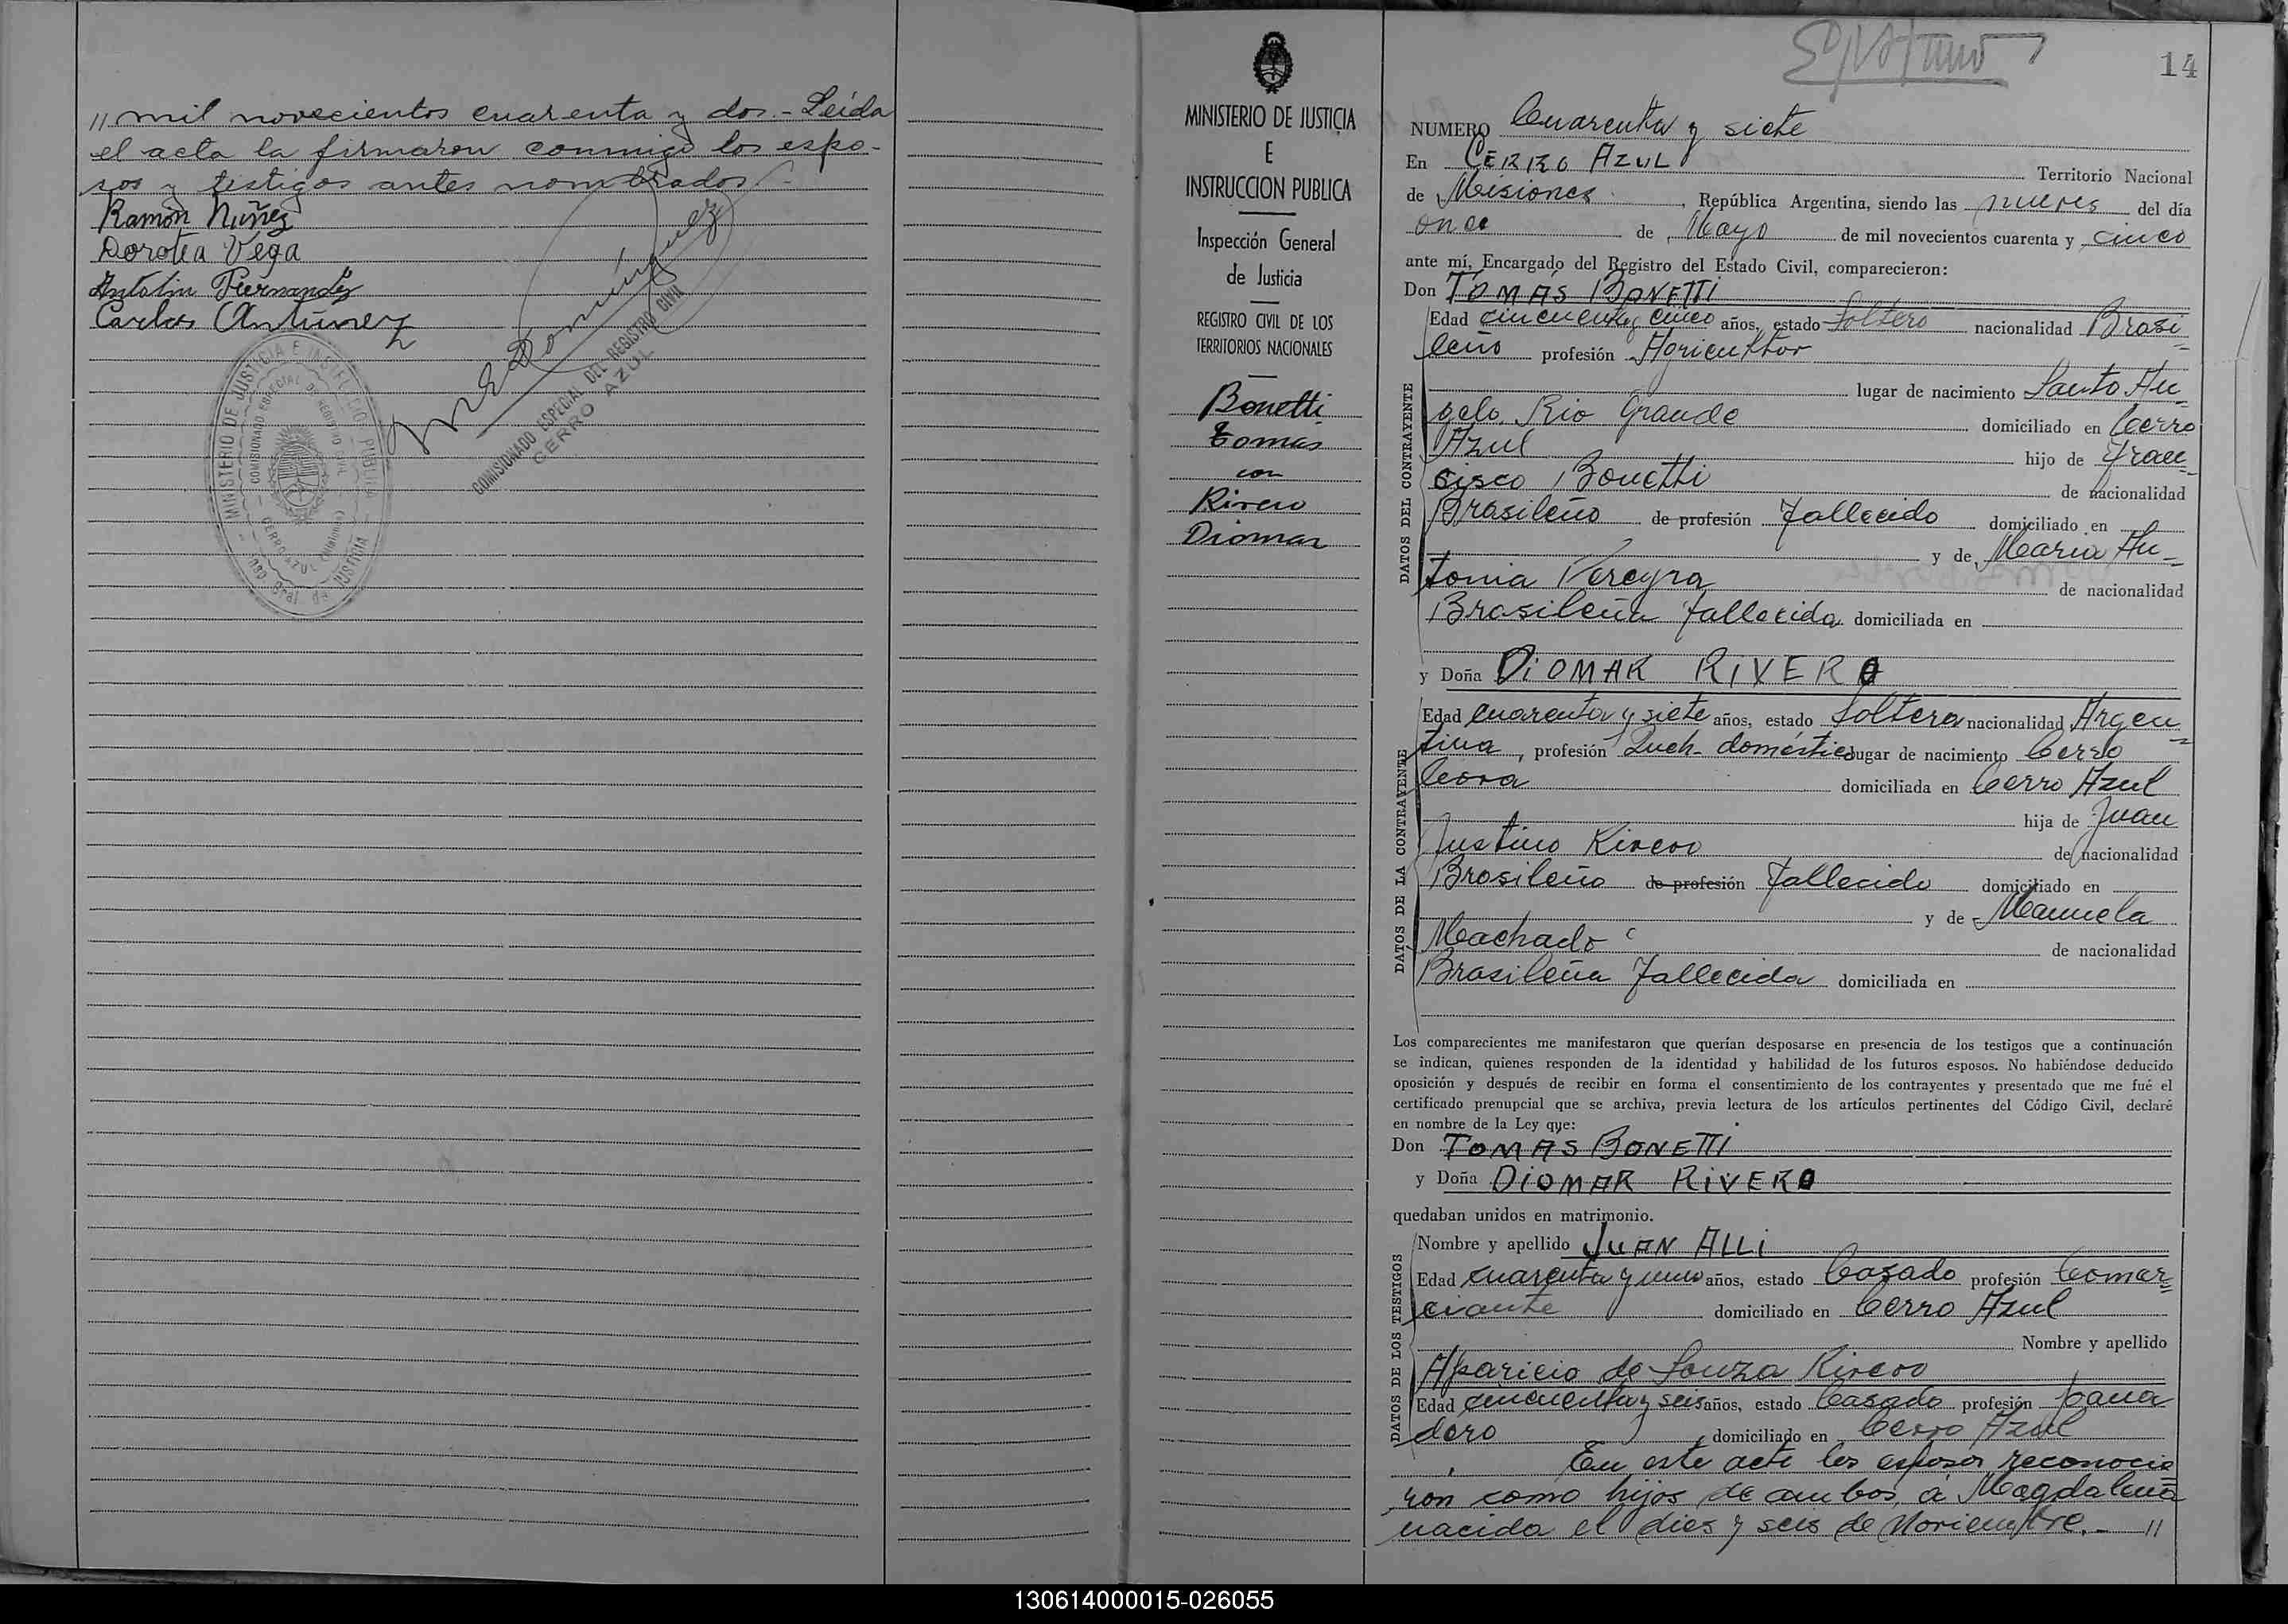 " mil novecientos cuarenta y dos.- Leída
el acta la firmaron conmigo los espo-
sos y testigos antes nombrados.-
Ramón Nuñez
Dorotea Vega
Antolin Fernandez
Carlos Antúnez
COMISIONADO ESPECIAL DEL REGISTRO CIVIL
CERRO AZUL
MINISTERIO DE JUSTICIA E INSTRUCCION PUBLICA
COMISIONADO ESPECIAL DE REGISTRO CIVIL
CERRO AZUL (Misiones)
Insp. Gral. de JUSTICIA
MINISTERIO DE JUSTICIA
E
INSTRUCCION PUBLICA
Inspección General
de Justicia
REGISTRO CIVIL DE LOS
TERRITORIOS NACIONALES
Bonetti
Tomas
con
Rivero
Diomar
14
NUMERO Cuarenta y siete
En CERRO AZUL Territorio Nacional
de Misiones, República Argentina, siendo las nueves del día
once de Mayo de mil novecientos cuarenta y cinco
ante mí, Encargado del Registro del Estado Civil, comparecieron:
Don TOMAS BONETTI
DATOS DEL CONTRAYENTE
Edad cincuenta y cinco años, estado Soltero nacionalidad Brasi-
leño profesión Agricultor
lugar de nacimiento Santo An-
gelo, Rio Grande domiciliado en Cerro
Azul hijo de Fran-
cisco Bonetti de nacionalidad
Brasileño de profesión Fallecido domiciliado en
y de María An-
tonia Pereyra de nacionalidad
Brasileña fallecida domiciliada en
y Doña DIOMAR RIVERO
DATOS DE LA CONTRAYENTE
Edad cuarenta y siete años, estado Soltera nacionalidad Argen-
tina, profesión Queh. doméstico lugar de nacimiento Cerro
Cora domiciliada en Cerro Azul
hija de Juan
Justino Rivero de nacionalidad
Brasileño de profesión Fallecido domiciliado en
y de Manuela
Machado de nacionalidad
Brasileña Fallecida domiciliada en
Los comparecientes me manifestaron que querían desposarse en presencia de los testigos que a continuación
se indican, quienes responden de la identidad y habilidad de los futuros esposos. No habiéndose deducido
oposición y después de recibir en forma el consentimiento de los contrayentes y presentado que me fué el
certificado prenupcial que se archiva, previa lectura de los artículos pertinentes del Código Civil, declaré
en nombre de la Ley que:
Don TOMAS BONETTI
y Doña DIOMAR RIVERO
quedaban unidos en matrimonio.
DATOS DE LOS TESTIGOS
Nombre y apellido JUAN ALLI
Edad cuarenta y uno años, estado Casado profesión Comer-
ciante domiciliado en Cerro Azul
Nombre y apellido
Aparicio de Souza Rivero
Edad cincuenta y seis años, estado Casado profesión pana
dero domiciliado en Cerro Azul
En este acto los esposos reconocie
ron como hijos de ambos, a Magdalena
nacida el dies y seis de Noviembre.- "
130614000015-026055